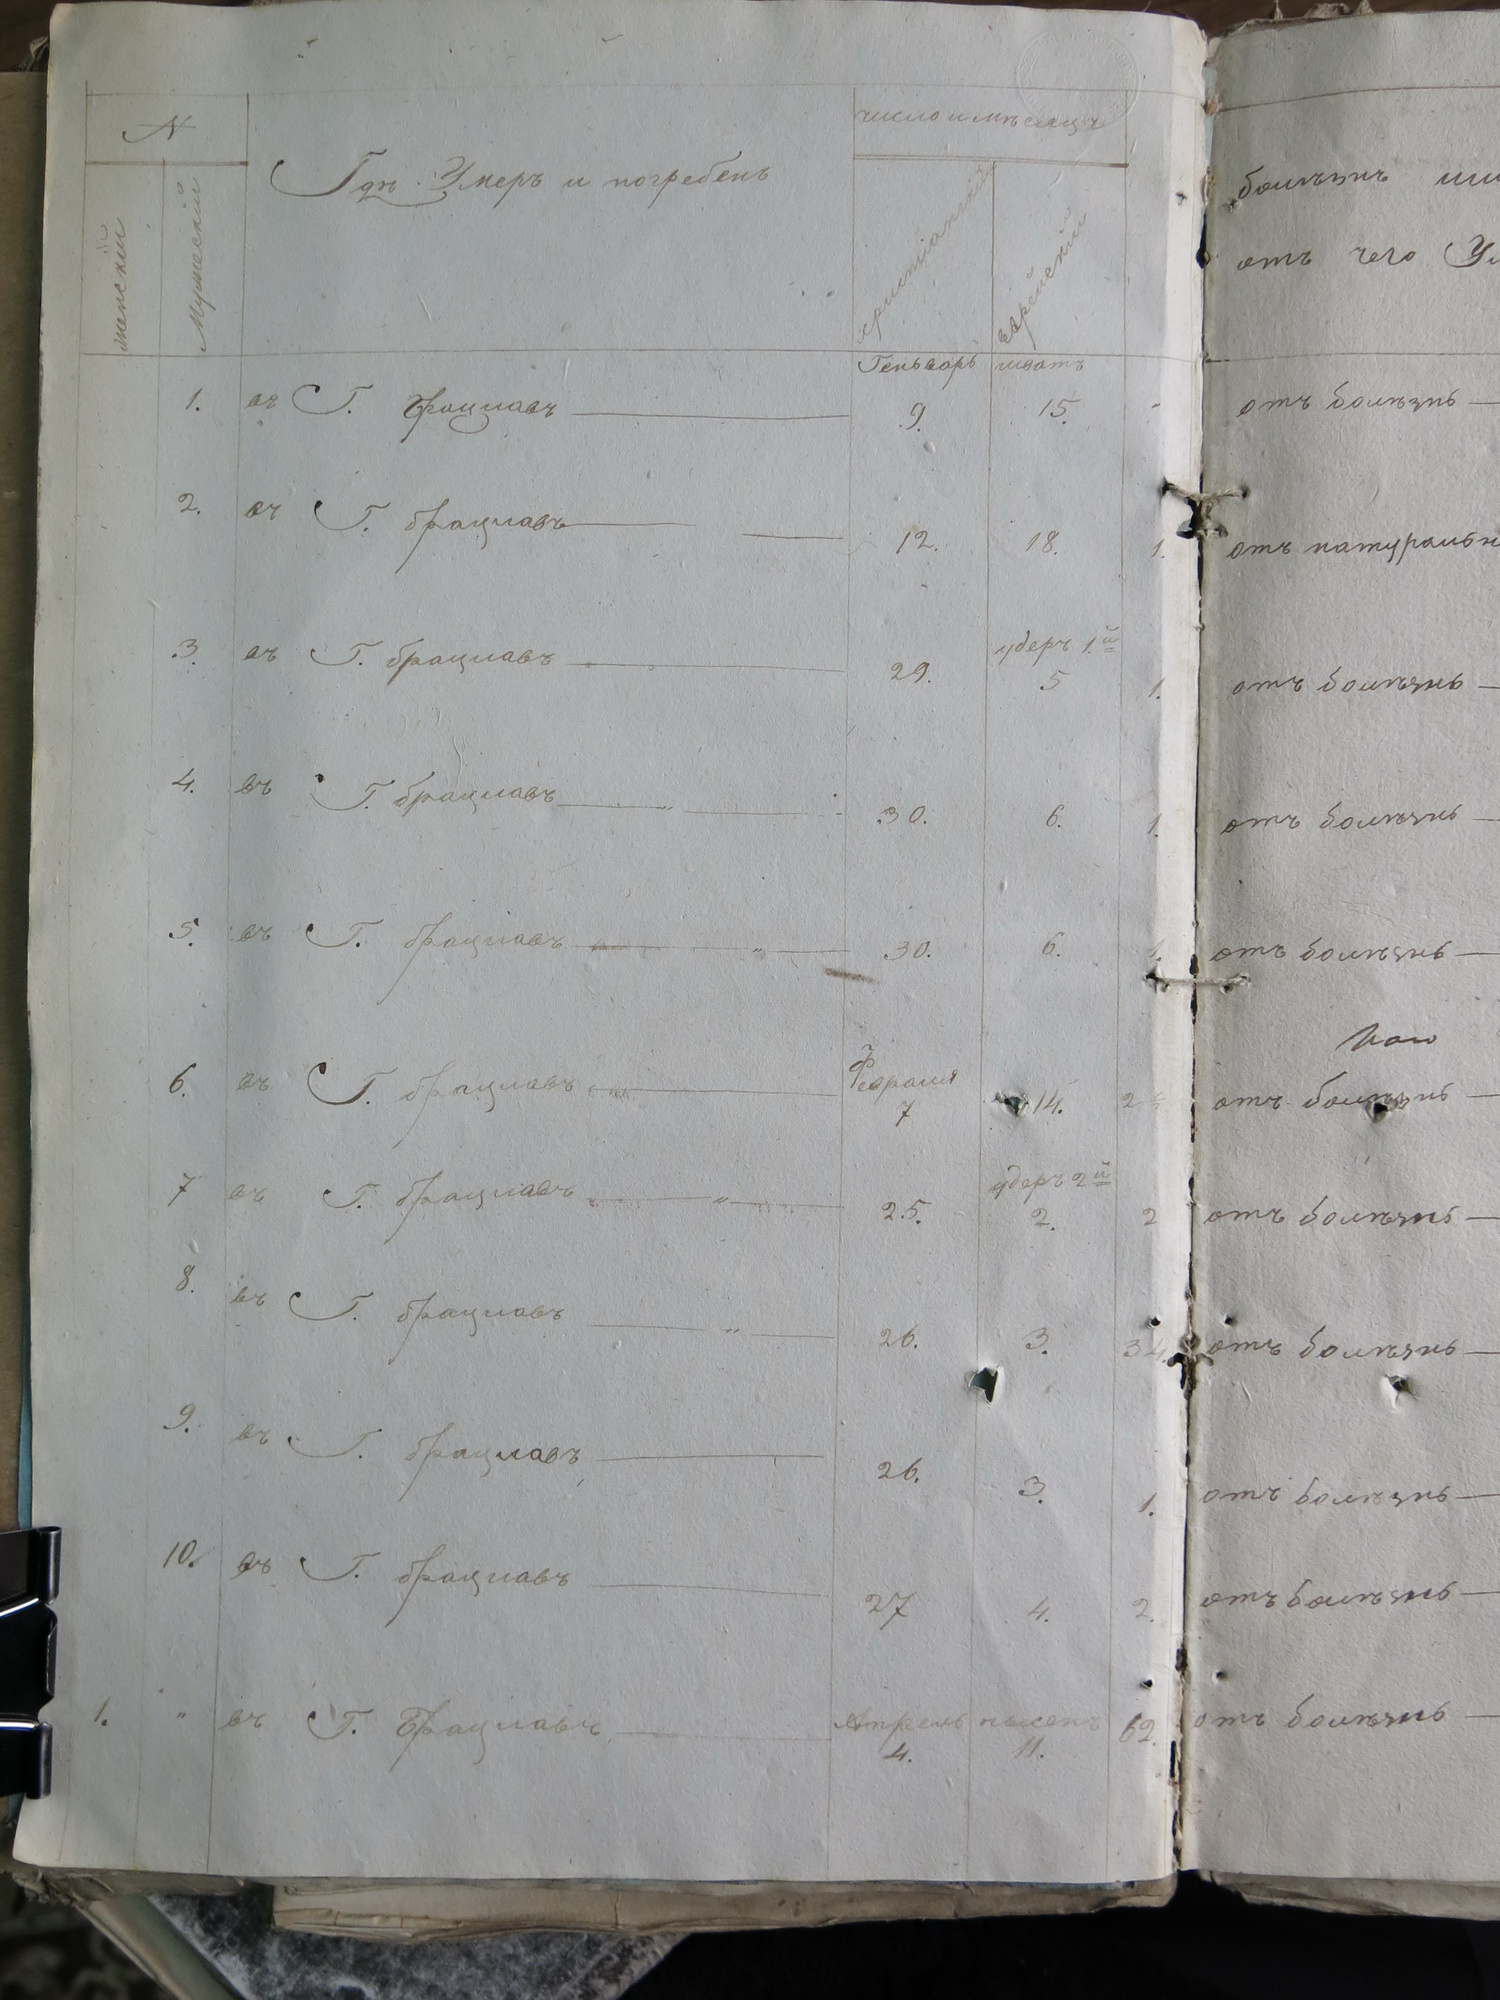 N
число и мѣсяцъ
Гдѣ Умеръ и погребенъ
женскій
Мужескій
христіанскій
Еврейскій
болѣзнь или
отъ чего Ум
Генварь шватъ
1. въ Г. Брацлавъ 9. 15. отъ болѣзнь
2. въ Г. брацлавъ 12. 18. 1. отъ натуральн
удеръ 1й
3. въ Г. брацлавъ 29. 5 1. отъ болѣзнь
4. въ Г. брацлавъ 30. 6. 1. отъ болѣзнь
5. въ Г. брацлавъ " 30. 6. 1. отъ болѣзнь
Февраля
6. въ Г. брацлавъ 7 14. 2 отъ болѣзнь
удеръ 2й
7 въ Г. брацлавъ " 25. 2. 2 отъ болѣзнь
8. въ Г. брацлавъ " 26. 3. 34. отъ болѣзнь
9. въ Г. брацлавъ 26. 3. 1. отъ болѣзнь
10. въ Г. брацлавъ 27 4. 2. отъ болѣзнь
1. " въ Г. Брацлавъ Апрель нысенъ 62. отъ болѣзнь
4. 11.